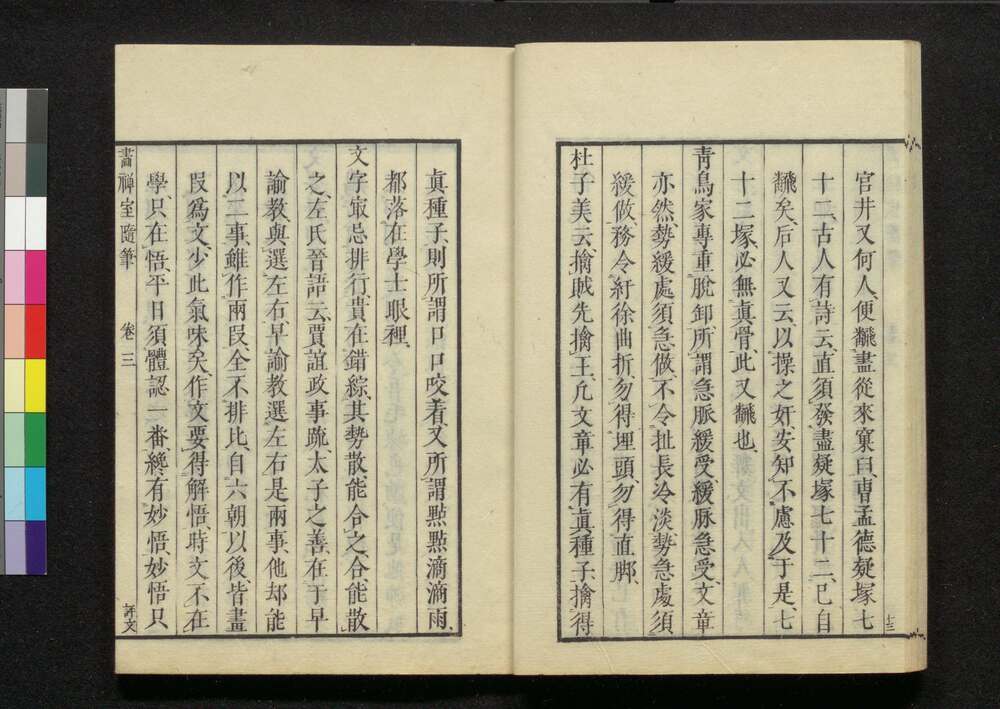 官井又何人、便飜盡從來窠臼、曹孟德疑塚七
十二、古人有詩云、直須發盡疑塚七十二、已自
飜矣、后人又云、以操之奸、安知不慮及于是、七
十二塚、必無眞骨、此又飜也、
靑鳥家專重脫卸、所謂急脈緩受、緩脈急受、文章
亦然、勢緩處須急做、不令扯長冷淡、勢急處須
緩做、務令紆徐曲折、勿得埋頭、勿得直脚、
杜子美云、擒賊先擒王、凡文章必有眞種子、擒得
七三
眞種子、則所謂口口咬着、又所謂點點滴滴雨、
都落在學士眼裡、
文字㝡忌排行、貴在錯綜、其勢散、能合之、合、能散
之、左氏晉語云、賈誼政事疏、太子之善、在于早
諭教與選左右、早諭教選左右、是兩事、他却能
以二事、雖作兩段、全不排比、自六朝以後、皆畫
段爲文、少此氣味矣、作文要得解悟、時文不在
學、只在悟、平日須體認一番、纔有妙悟、妙悟只
畫禪室隨筆 卷三 評文